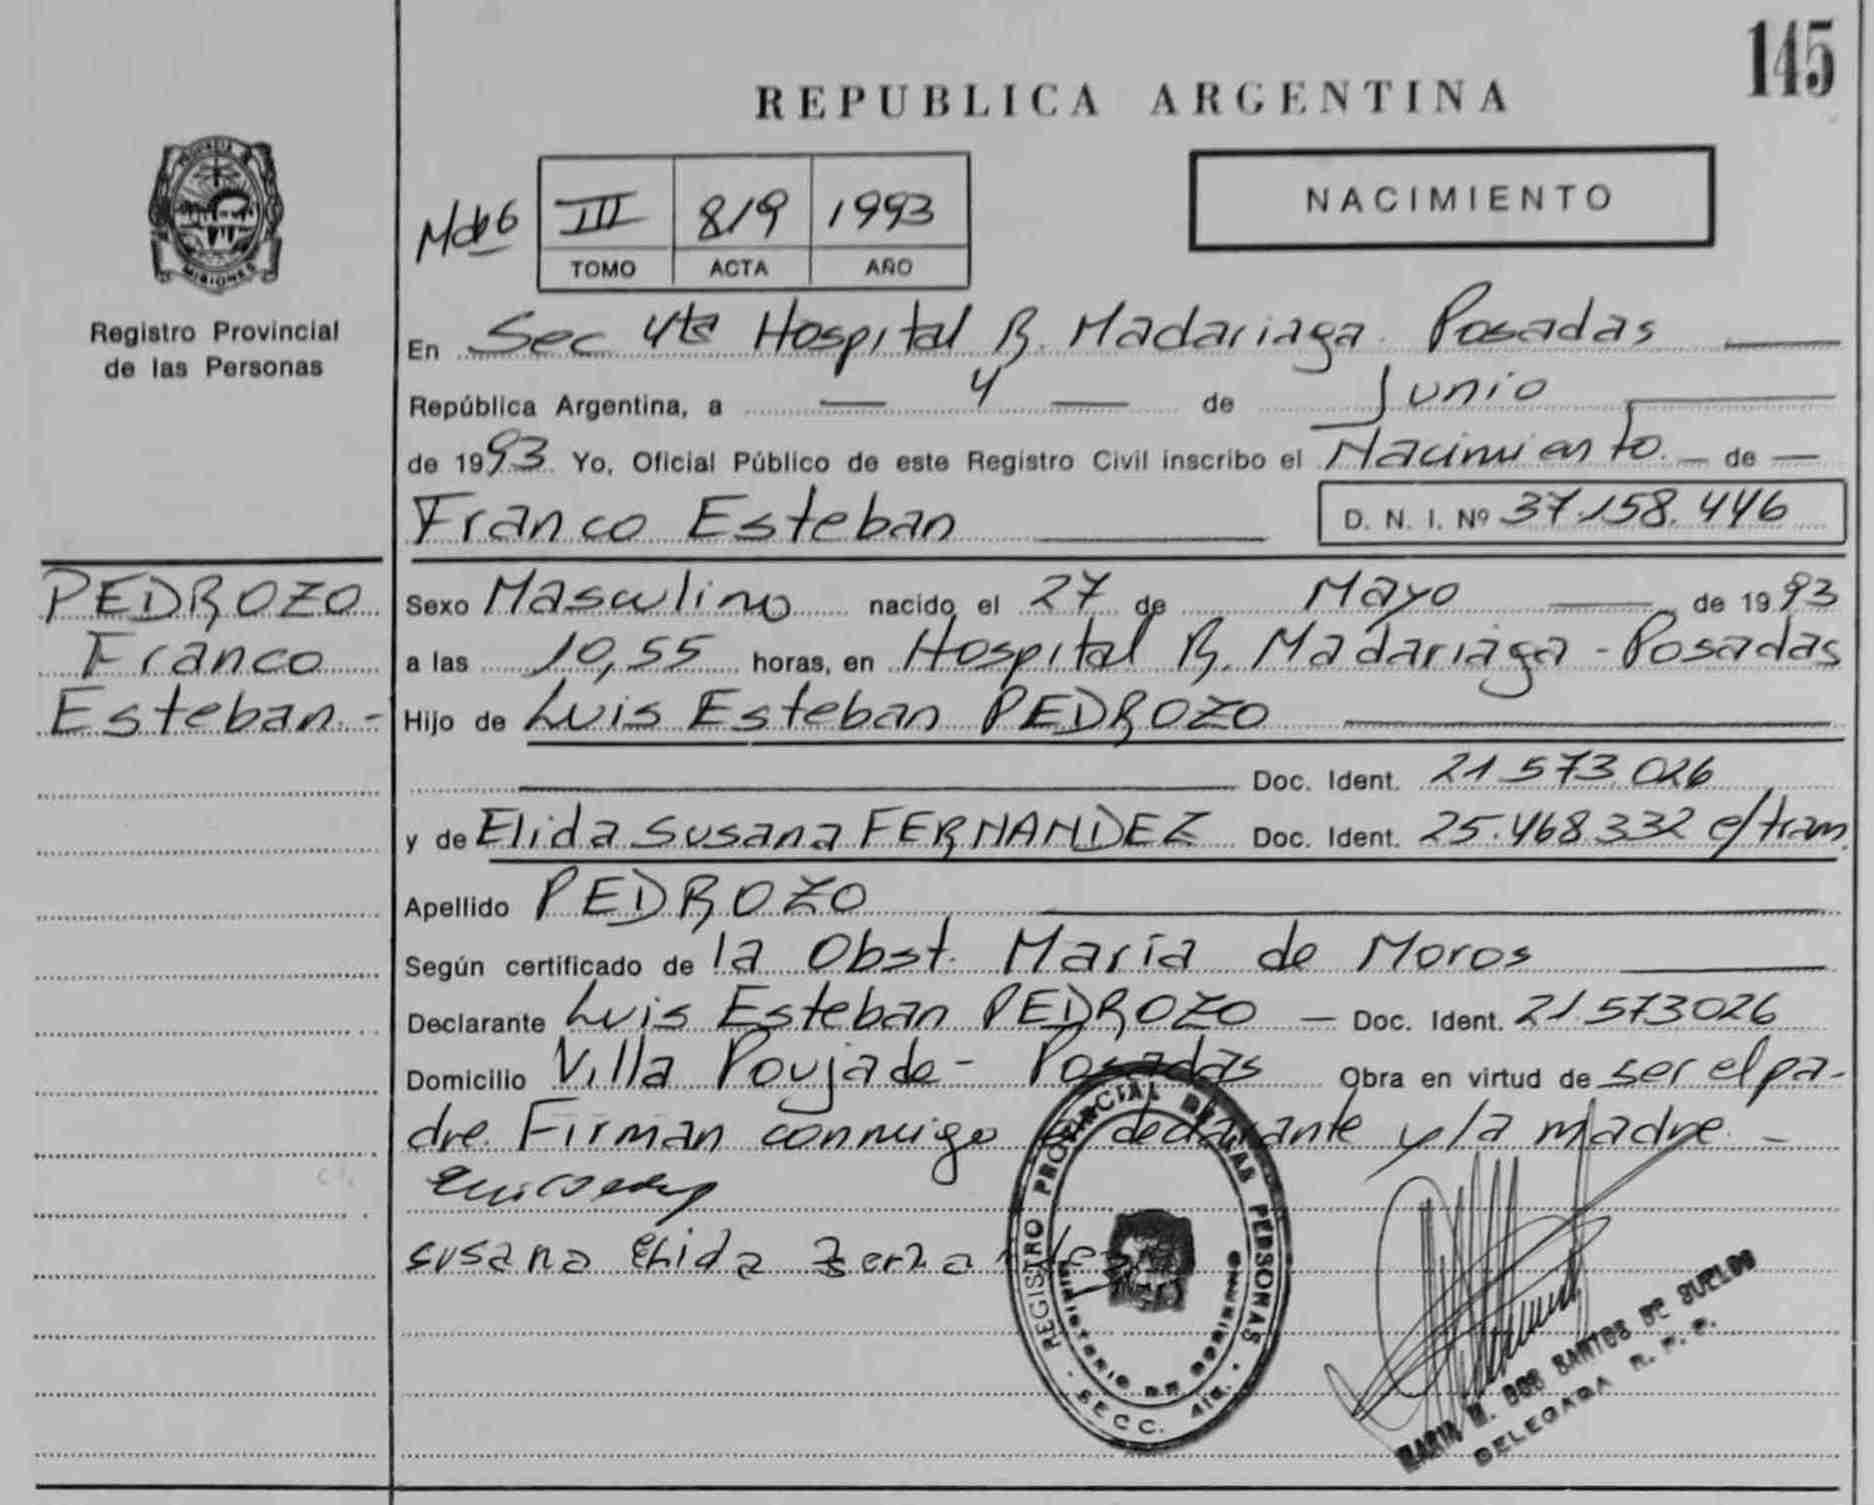 145
REPUBLICA ARGENTINA
NACIMIENTO
III 819 1993
TOMO ACTA AÑO
PROVINCIA DE
MISIONES
Registro Provincial
de las Personas
En Sec 4ta Hospital R. Madariaga. Posadas
República Argentina, a 4 de Junio
de 1993 Yo, Oficial Público de este Registro Civil inscribo el Nacimiento. de
Franco Esteban D. N. I. Nº 37.158.446
PEDROZO
Franco
Esteban.-
Sexo Masculino nacido el 27 de Mayo de 1993
a las 10,55 horas, en Hospital R. Madariaga - Posadas
Hijo de Luis Esteban PEDROZO
Doc. Ident. 21.573.026
y de Elida Susana FERNANDEZ Doc. Ident. 25.468.332 e/tram.
Apellido PEDROZO
Según certificado de la Obst. María de Moros
Declarante Luis Esteban PEDROZO — Doc. Ident. 21.573026
Domicilio Villa Poujade - Posadas Obra en virtud de ser el pa-
dre. Firman conmigo el declarante y la madre -
susana Elida
REGISTRO PROVINCIAL DE LAS PERSONAS
MINISTERIO DE GOBIERNO
SECC. 4ta.
MARIA M. DOS SANTOS DE SUELDO
DELEGADA R. P. P.